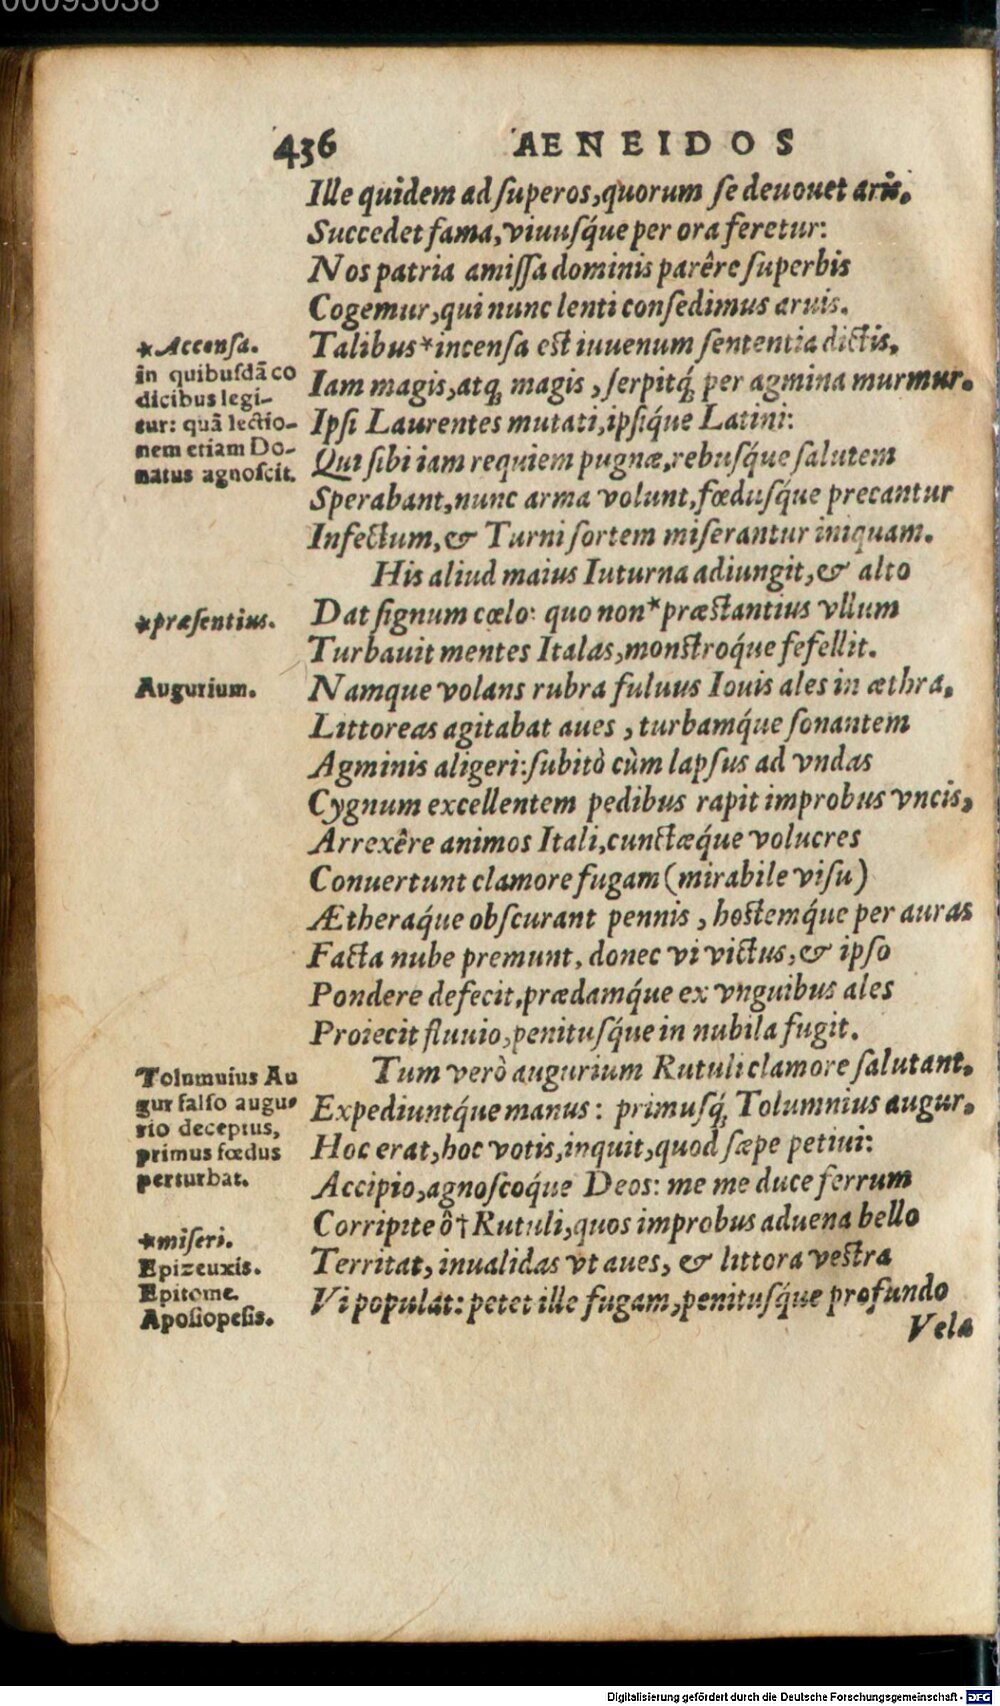 00093038
436 AENEIDOS
Ille quidem ad ſuperos,quorum ſe deuouet aris.
Succedet fama,viuuſq́ue per ora feretur:
Nos patria amiſſa dominis parêre ſuperbis
Cogemur,qui nunc lenti conſedimus aruis.
*Accenſa.
in quibuſdã co
dicibus legi-
tur: quã lectio-
nem etiam Do-
natus agnoſcit.
Talibus*incenſa eſt iuuenum ſententia dictis,
Iam magis,atq; magis,ſerpitq́; per agmina murmur.
Ipſi Laurentes mutati,ipſiq́ue Latini:
Qui ſibi iam requiem pugnæ,rebuſq́ue ſalutem
Sperabant,nunc arma volunt,fœduſq́ue precantur
Infectum,& Turni ſortem miſerantur iniquam.
His aliud maius Iuturna adiungit,& alto
*præſentius.
Dat ſignum cœlo: quo non*præſtantius vllum
Turbauit mentes Italas,monſtroq́ue fefellit.
Augurium.
Namque volans rubra fuluus Iouis ales in æthra,
Littoreas agitabat aues, turbamq́ue ſonantem
Agminis aligeri:ſubitò cùm lapſus ad vndas
Cygnum excellentem pedibus rapit improbus vncis,
Arrexêre animos Itali,cunctæq́ue volucres
Conuertunt clamore fugam (mirabile viſu)
Ætheraq́ue obſcurant pennis, hoſtemq́ue per auras
Facta nube premunt, donec vi victus,& ipſo
Pondere defecit,prædamq́ue ex vnguibus ales
Proiecit fluuio,penituſq́ue in nubila fugit.
Tum verò augurium Rutuli clamore ſalutant,
Tolumnius Au
gur falſo augu-
rio deceptus,
primus fœdus
perturbat.
Expediuntq́ue manus: primuſq́; Tolumnius augur.
Hoc erat,hoc votis,inquit,quod ſæpe petiui:
Accipio,agnoſcoq́ue Deos: me me duce ferrum
*miſeri.
Epizeuxis.
Epitome.
Apoſiopeſis.
Corripite ô†Rutuli,quos improbus aduena bello
Territat, inualidas vt aues, & littora veſtra
Vi populat: petet ille fugam,penituſq́ue profundo
Vela
Digitalisierung gefördert durch die Deutsche Forschungsgemeinschaft - DFG